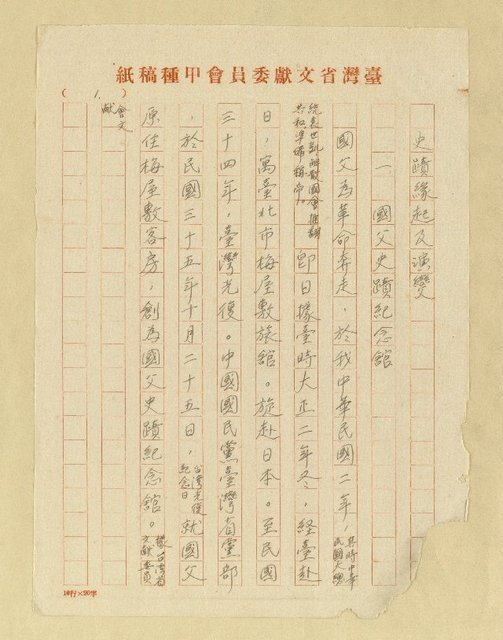 紙稿種甲會員委獻文省灣臺
( 1. )
史蹟緣起及演變
一 國父史蹟紀念館
國父為革命奔走，於我中華民國二年，其時中華民國大總
統袁世凱解散國會推翻共和準備稱帝。即日據臺時大正二年冬，經臺赴
日，寓臺北市梅屋敷旅館。旋赴日本。至民國
三十四年，臺灣光復。中國國民黨臺灣省黨部
，於民國三十五年十月二十五日，台灣光復紀念日就國父
原住梅屋敷客房，創為國父史蹟紀念館。據台灣省文獻委員
會文獻
10行×20字